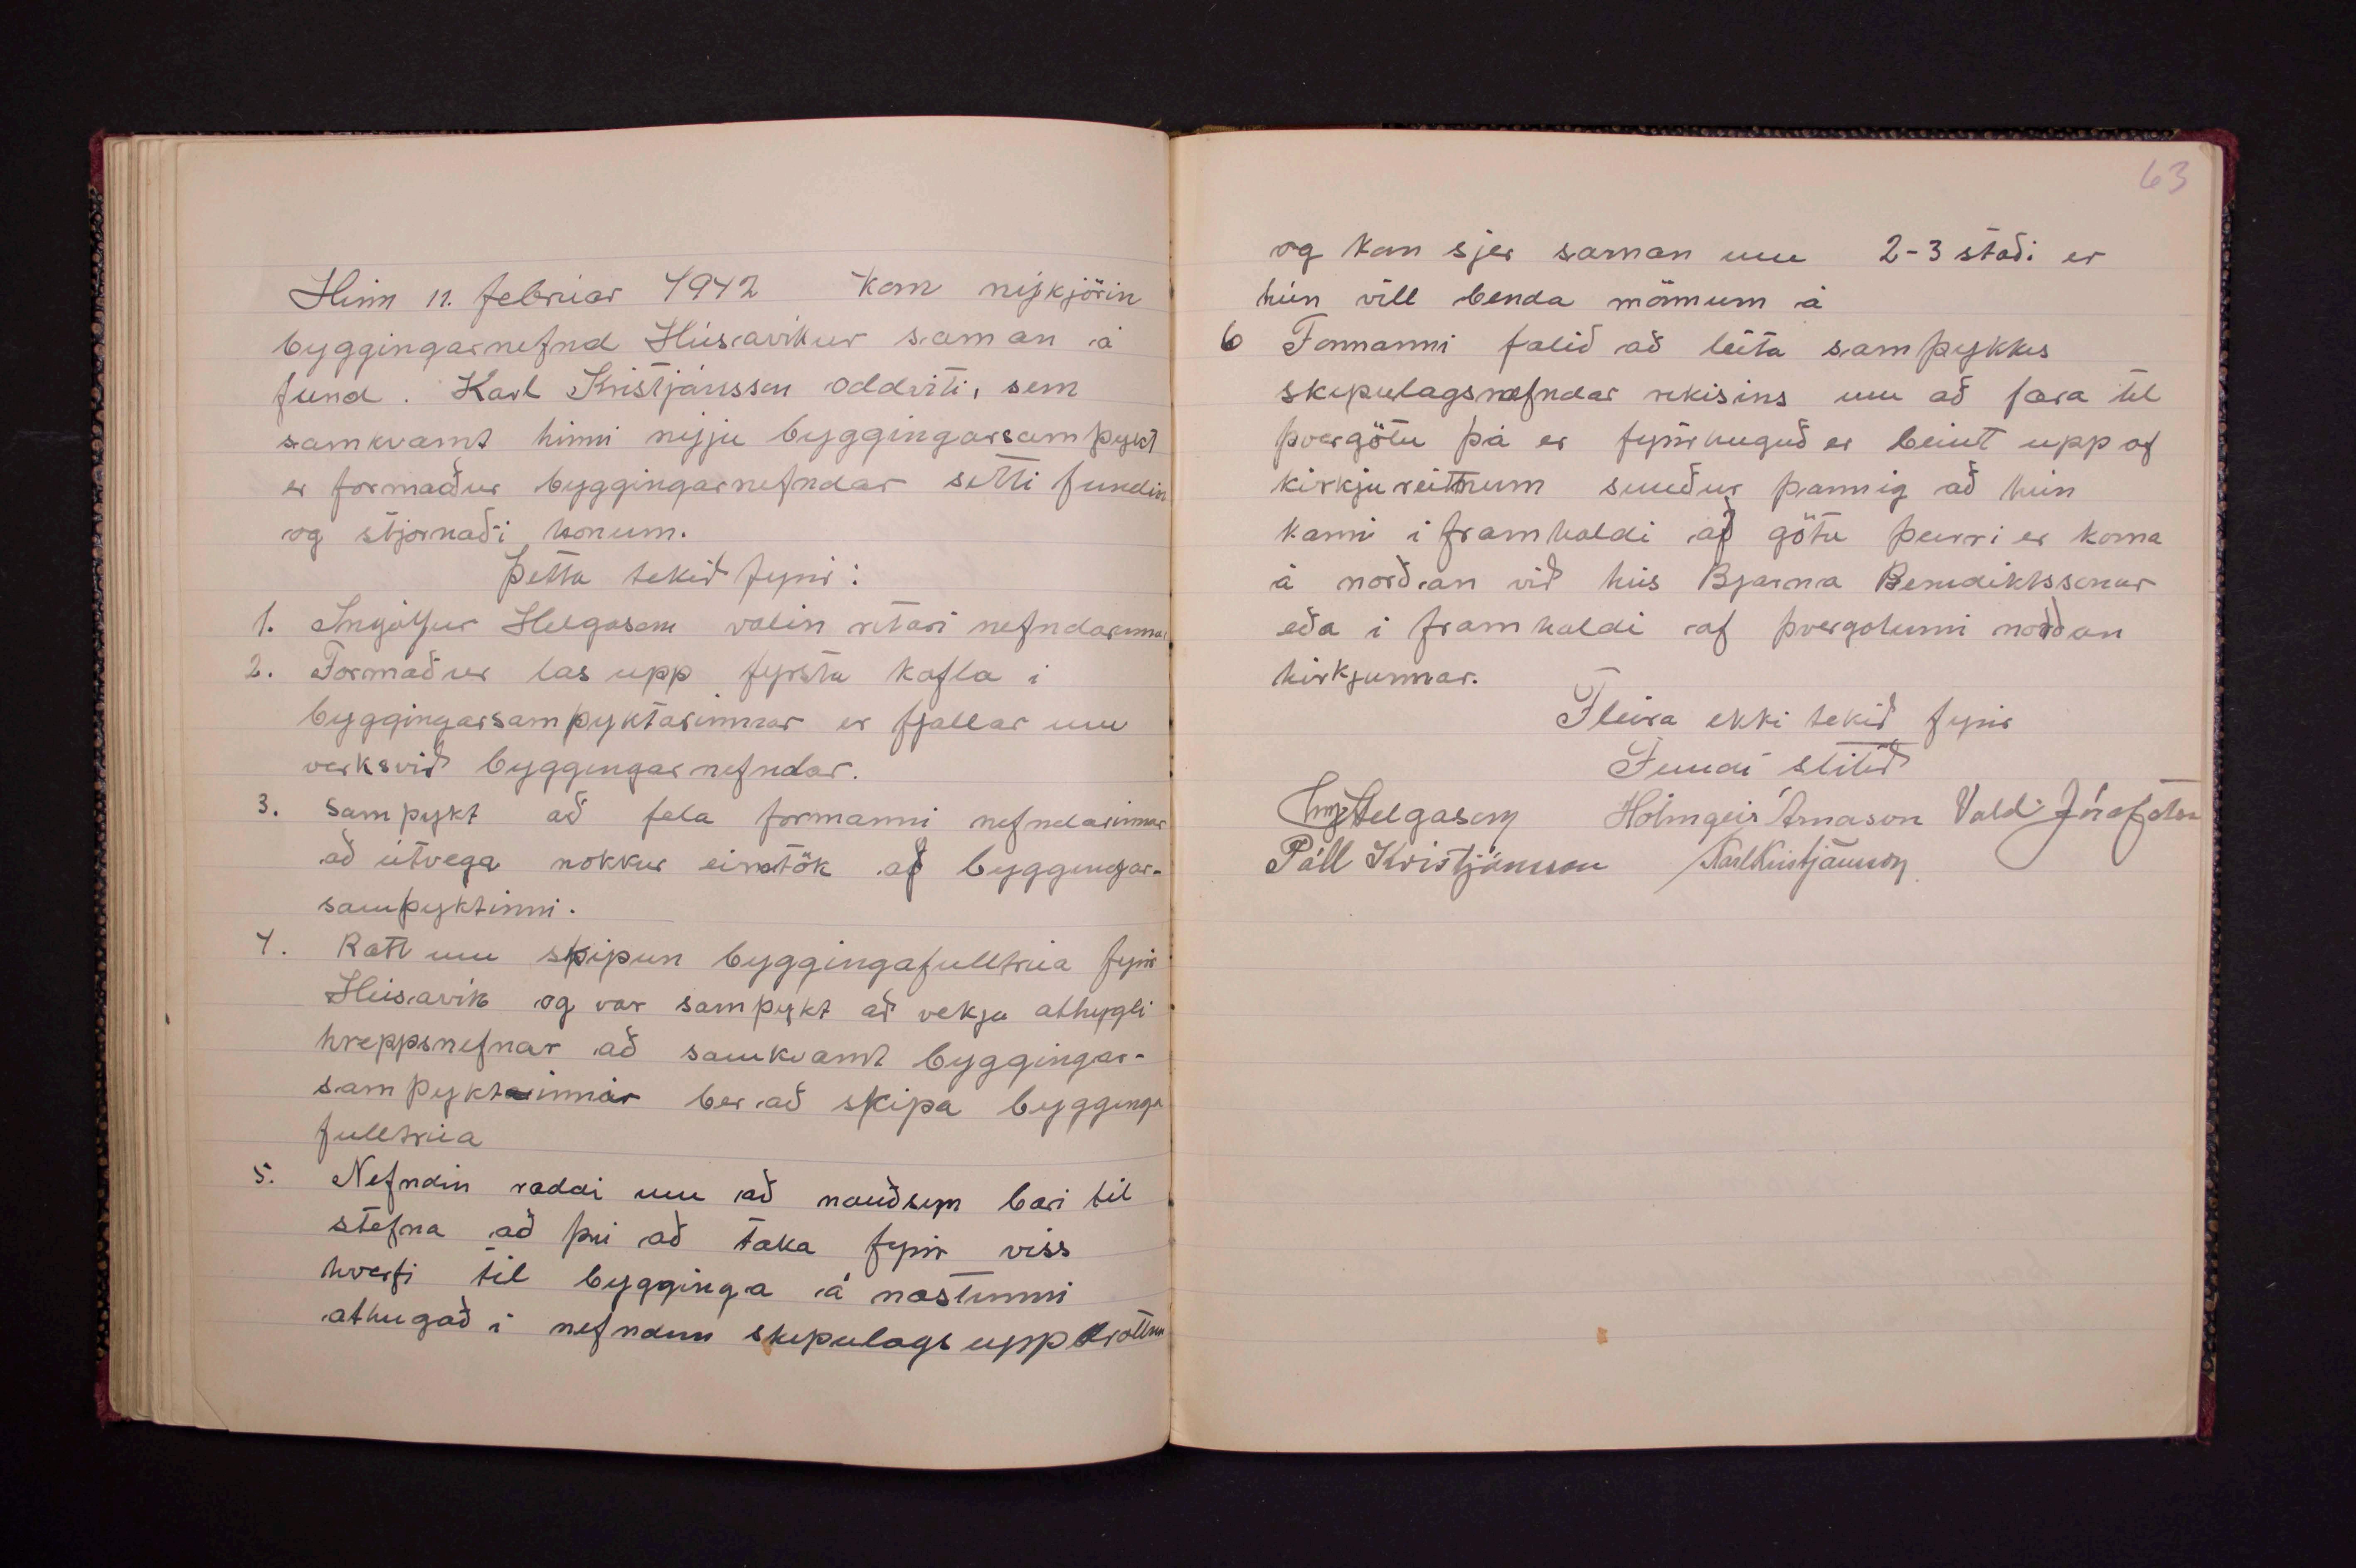 Hinn 11. febrúar 1942 kom nýkjörin
byggingarnefnd Húsavikur saman á
fund. Karl Kristjánsson oddviti, sem
samkvamt hinni nýju byggingarsamþykt
er formaður byggingarnefndar setti fundin
og stjornaði honum.
Þetta tekið fyrir:
1. Ingólfur Helgason valin ritari nefndarinnar
2. Formaður las upp fyrsta kafla i
byggingarsamþyktarinnar er fjallar um
verksvið byggingarnefndar.
3. Samþykt að fela formanni nefndarinnar
að útvega nokkur eintök af byggingar-
samþyktinni.
4. Ratt um skipun byggingafulltrúa fyrir
Húsavik og var samþykt að vekja athygli
hreppsnefnar að samkvamt byggingar-
samþyktinnar ber að skipa bygginga
fulltrúa
5. Nefndin raddi um að nauðsyn bari til
stefna að þvi að taka fyrir viss
hverfi til bygginga á nastunni
athugað i nefndinni skipulagsuppdrattinn
63
og kom sjer saman um 2-3 staði er
hún vill benda mönnum á
6 Formanni falið að leita samþykkis
skipulagsnefndar rikisins um að fara til
þvergötu þá er fyrirhuguð er beint upp af
kirkjureitnum suður þannig að hún
kami i framhaldi af götu þeirri er koma
á norðan við hús Bjarna Benediktssonar
eða i framhaldi af þvergötunni norðan
kirkjunnar.
Fleira ekki tekið fyrir
Fundi slitið
Ing Helgason Hólmgeir Árnason Vald. Jósafatsson
Páll Kristjánsson Karl Kristjánsson